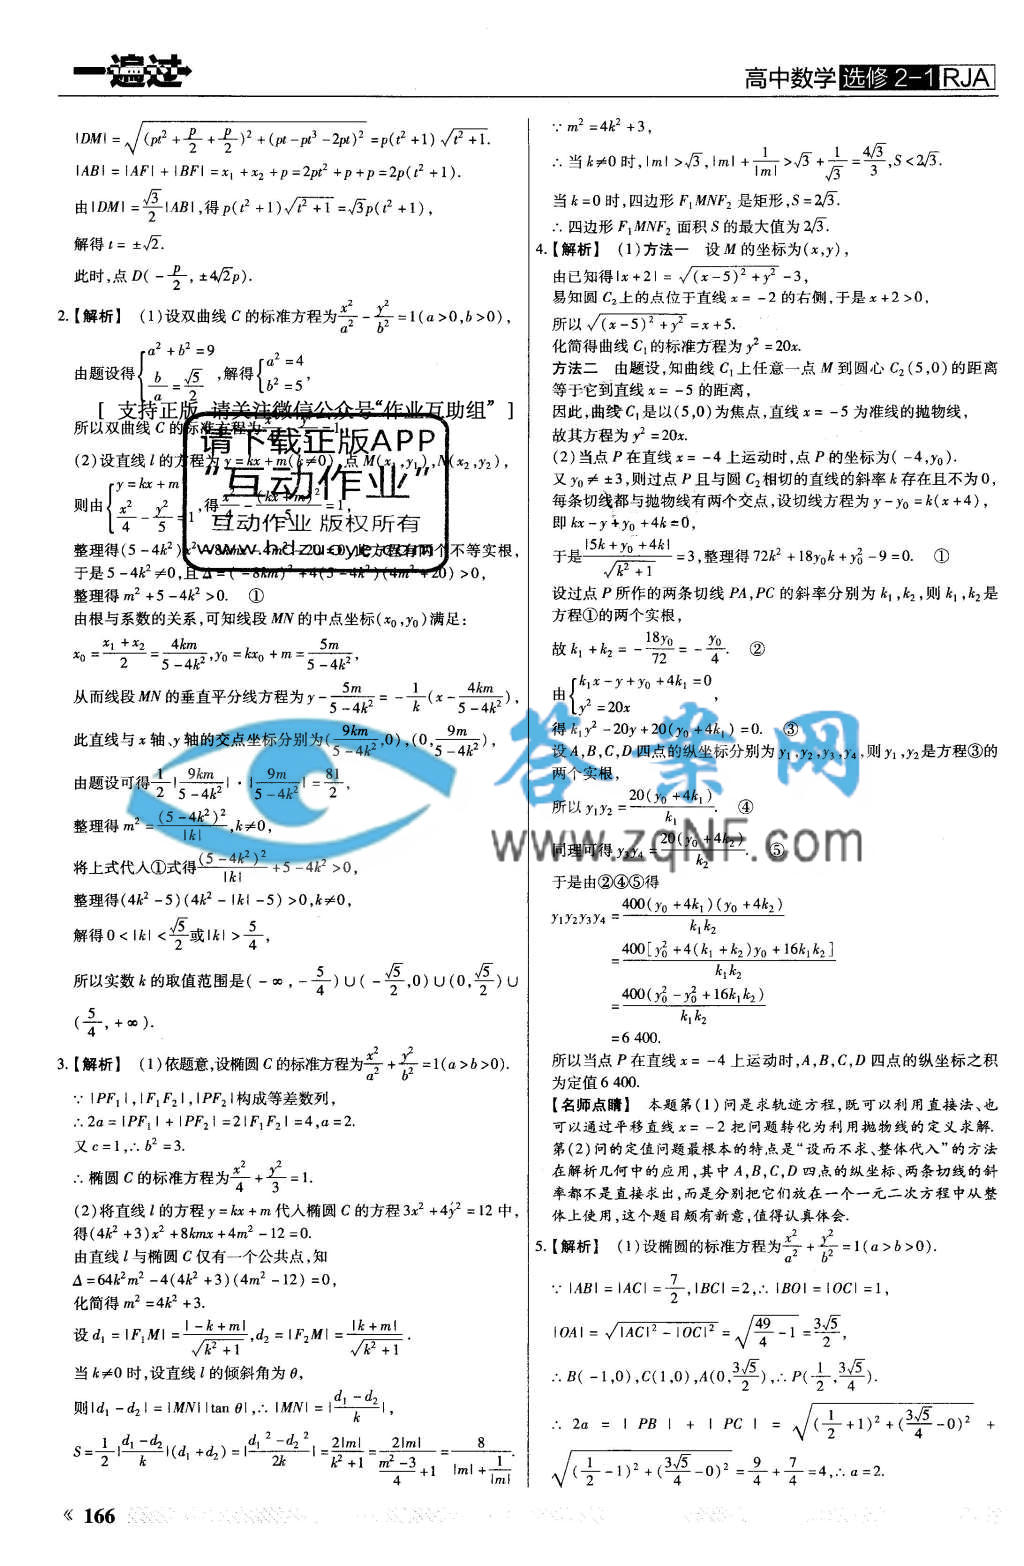 一遍过
高中数学 选修2-1 RJA
|DM|=√((pt²+p/2+p/2)²+(pt-pt³-2pt)²)=p(t²+1)√(t²+1).
|AB|=|AF|+|BF|=x₁+x₂+p=2pt²+p+p=2p(t²+1).
由|DM|=√3/2|AB|,得p(t²+1)√(t²+1)=√3p(t²+1),
解得t=±√2.
此时,点D(-p/2,±4√2p).
2.【解析】 (1)设双曲线C的标准方程为x²/a²-y²/b²=1(a>0,b>0),
由题设得{a²+b²=9, b/a=√5/2,解得{a²=4, b²=5,
[ 支持正版 请关注微信公众号“作业互助组” ]
所以双曲线C的标准方程为x²/4-y²/5=1.
请下载正版APP
“互动作业”
互动作业 版权所有
www.hdzuoye.com
(2)设直线l的方程为y=kx+m(k≠0),点M(x₁,y₁),N(x₂,y₂),
则由{y=kx+m, x²/4-y²/5=1,得x²/4-(kx+m)²/5=1,
整理得(5-4k²)x²-8kmx-4m²-20=0.此方程有两个不等实根,
于是5-4k²≠0,且Δ=(-8km)²+4(5-4k²)(4m²+20)>0,
整理得m²+5-4k²>0. ①
由根与系数的关系,可知线段MN的中点坐标(x₀,y₀)满足:
x₀=(x₁+x₂)/2=4km/(5-4k²),y₀=kx₀+m=5m/(5-4k²),
从而线段MN的垂直平分线方程为y-5m/(5-4k²)=-1/k(x-4km/(5-4k²)),
此直线与x轴、y轴的交点坐标分别为(9km/(5-4k²),0),(0,9m/(5-4k²)),
由题设可得1/2|9km/(5-4k²)|·|9m/(5-4k²)|=81/2,
整理得m²=(5-4k²)²/|k|,k≠0,
将上式代入①式得(5-4k²)²/|k|+5-4k²>0,
整理得(4k²-5)(4k²-|k|-5)>0,k≠0,
解得0<|k|<√5/2或|k|>5/4,
所以实数k的取值范围是(-∞,-5/4)∪(-√5/2,0)∪(0,√5/2)∪
(5/4,+∞).
3.【解析】 (1)依题意,设椭圆C的标准方程为x²/a²+y²/b²=1(a>b>0).
∵|PF₁|,|F₁F₂|,|PF₂|构成等差数列,
∴2a=|PF₁|+|PF₂|=2|F₁F₂|=4,a=2.
又c=1,∴b²=3.
∴椭圆C的标准方程为x²/4+y²/3=1.
(2)将直线l的方程y=kx+m代入椭圆C的方程3x²+4y²=12中,
得(4k²+3)x²+8kmx+4m²-12=0.
由直线l与椭圆C仅有一个公共点,知
Δ=64k²m²-4(4k²+3)(4m²-12)=0,
化简得m²=4k²+3.
设d₁=|F₁M|=|-k+m|/√(k²+1),d₂=|F₂M|=|k+m|/√(k²+1).
当k≠0时,设直线l的倾斜角为θ,
则|d₁-d₂|=|MN||tan θ|,∴|MN|=|(d₁-d₂)/k|,
S=1/2|(d₁-d₂)/k|(d₁+d₂)=|(d₁²-d₂²)/2k|=2|m|/(k²+1)=2|m|/((m²-3)/4+1)=8/(|m|+1/|m|).
《 166
∵m²=4k²+3,
∴当k≠0时,|m|>√3,|m|+1/|m|>√3+1/√3=4√3/3,S<2√3.
当k=0时,四边形F₁MNF₂是矩形,S=2√3.
∴四边形F₁MNF₂面积S的最大值为2√3.
4.【解析】 (1)方法一 设M的坐标为(x,y),
由已知得|x+2|=√((x-5)²+y²)-3,
易知圆C₂上的点位于直线x=-2的右侧,于是x+2>0,
所以√((x-5)²+y²)=x+5.
化简得曲线C₁的标准方程为y²=20x.
方法二 由题设,知曲线C₁上任意一点M到圆心C₂(5,0)的距离
等于它到直线x=-5的距离,
因此,曲线C₁是以(5,0)为焦点,直线x=-5为准线的抛物线,
故其方程为y²=20x.
(2)当点P在直线x=-4上运动时,点P的坐标为(-4,y₀).
又y₀≠±3,则过点P且与圆C₂相切的直线的斜率k存在且不为0,
每条切线都与抛物线有两个交点,设切线方程为y-y₀=k(x+4),
即kx-y+y₀+4k=0,
于是|5k+y₀+4k|/√(k²+1)=3,整理得72k²+18y₀k+y₀²-9=0. ①
设过点P所作的两条切线PA,PC的斜率分别为k₁,k₂,则k₁,k₂是
方程①的两个实根,
故k₁+k₂=-18y₀/72=-y₀/4. ②
由{k₁x-y+y₀+4k₁=0, y²=20x,
得k₁y²-20y+20(y₀+4k₁)=0. ③
设A,B,C,D四点的纵坐标分别为y₁,y₂,y₃,y₄,则y₁,y₂是方程③的
两个实根,
所以y₁y₂=20(y₀+4k₁)/k₁. ④
同理可得y₃y₄=20(y₀+4k₂)/k₂. ⑤
于是由②④⑤得
y₁y₂y₃y₄=400(y₀+4k₁)(y₀+4k₂)/k₁k₂
=400[y₀²+4(k₁+k₂)y₀+16k₁k₂]/k₁k₂
=400(y₀²-y₀²+16k₁k₂)/k₁k₂
=6 400.
所以当点P在直线x=-4上运动时,A,B,C,D四点的纵坐标之积
为定值6 400.
【名师点睛】 本题第(1)问是求轨迹方程,既可以利用直接法、也
可以通过平移直线x=-2把问题转化为利用抛物线的定义求解.
第(2)问的定值问题最根本的特点是“设而不求、整体代入”的方法
在解析几何中的应用,其中A,B,C,D四点的纵坐标、两条切线的斜
率都不是直接求出,而是分别把它们放在一个一元二次方程中从整
体上使用,这个题目颇有新意,值得认真体会.
5.【解析】 (1)设椭圆的标准方程为x²/a²+y²/b²=1(a>b>0).
∵|AB|=|AC|=7/2,|BC|=2,∴|BO|=|OC|=1,
|OA|=√(|AC|²-|OC|²)=√(49/4-1)=3√5/2,
∴B(-1,0),C(1,0),A(0,3√5/2),∴P(1/2,3√5/4).
∴2a=|PB|+|PC|=√((1/2+1)²+(3√5/4-0)²)+
√((1/2-1)²+(3√5/4-0)²)=9/4+7/4=4,∴a=2.
答案网
www.zqNF.com